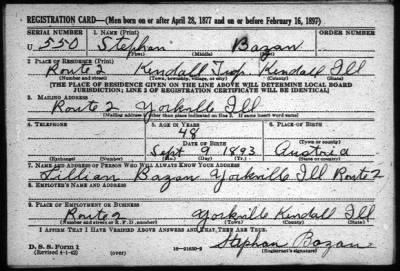 REGISTRATION CARD—(Men born on or after April 28, 1877 and on or before February 16, 1897)
SERIAL NUMBER 1. NAME (Print) ORDER NUMBER
U 550 Stephan Bazan
(First) (Middle) (Last)
2. PLACE OF RESIDENCE (Print)
Route 2 Kendall Twp Kendall Ill
(Number and street) (Town, township, village, or city) (County) (State)
[THE PLACE OF RESIDENCE GIVEN ON THE LINE ABOVE WILL DETERMINE LOCAL BOARD
JURISDICTION; LINE 2 OF REGISTRATION CERTIFICATE WILL BE IDENTICAL]
3. MAILING ADDRESS
Route 2 Yorkville Ill
(Mailing address if other than place indicated on line 2. If same insert word same)
4. TELEPHONE 5. AGE IN YEARS 6. PLACE OF BIRTH
48
DATE OF BIRTH (Town or county)
Sept 9 1893 Austria
(Exchange) (Number) (Mo.) (Day) (Yr.) (State or country)
7. NAME AND ADDRESS OF PERSON WHO WILL ALWAYS KNOW YOUR ADDRESS
Lillian Bazan Yorkville Ill Route 2
8. EMPLOYER'S NAME AND ADDRESS
9. PLACE OF EMPLOYMENT OR BUSINESS
Route 2 Yorkville Kendall Ill
(Number and street or R. F. D. number) (Town) (County) (State)
I AFFIRM THAT I HAVE VERIFIED ABOVE ANSWERS AND THAT THEY ARE TRUE.
D. S. S. Form 1
(Revised 4-1-42) (over) 16—21630-2 Stephan Bazan
(Registrant's signature)